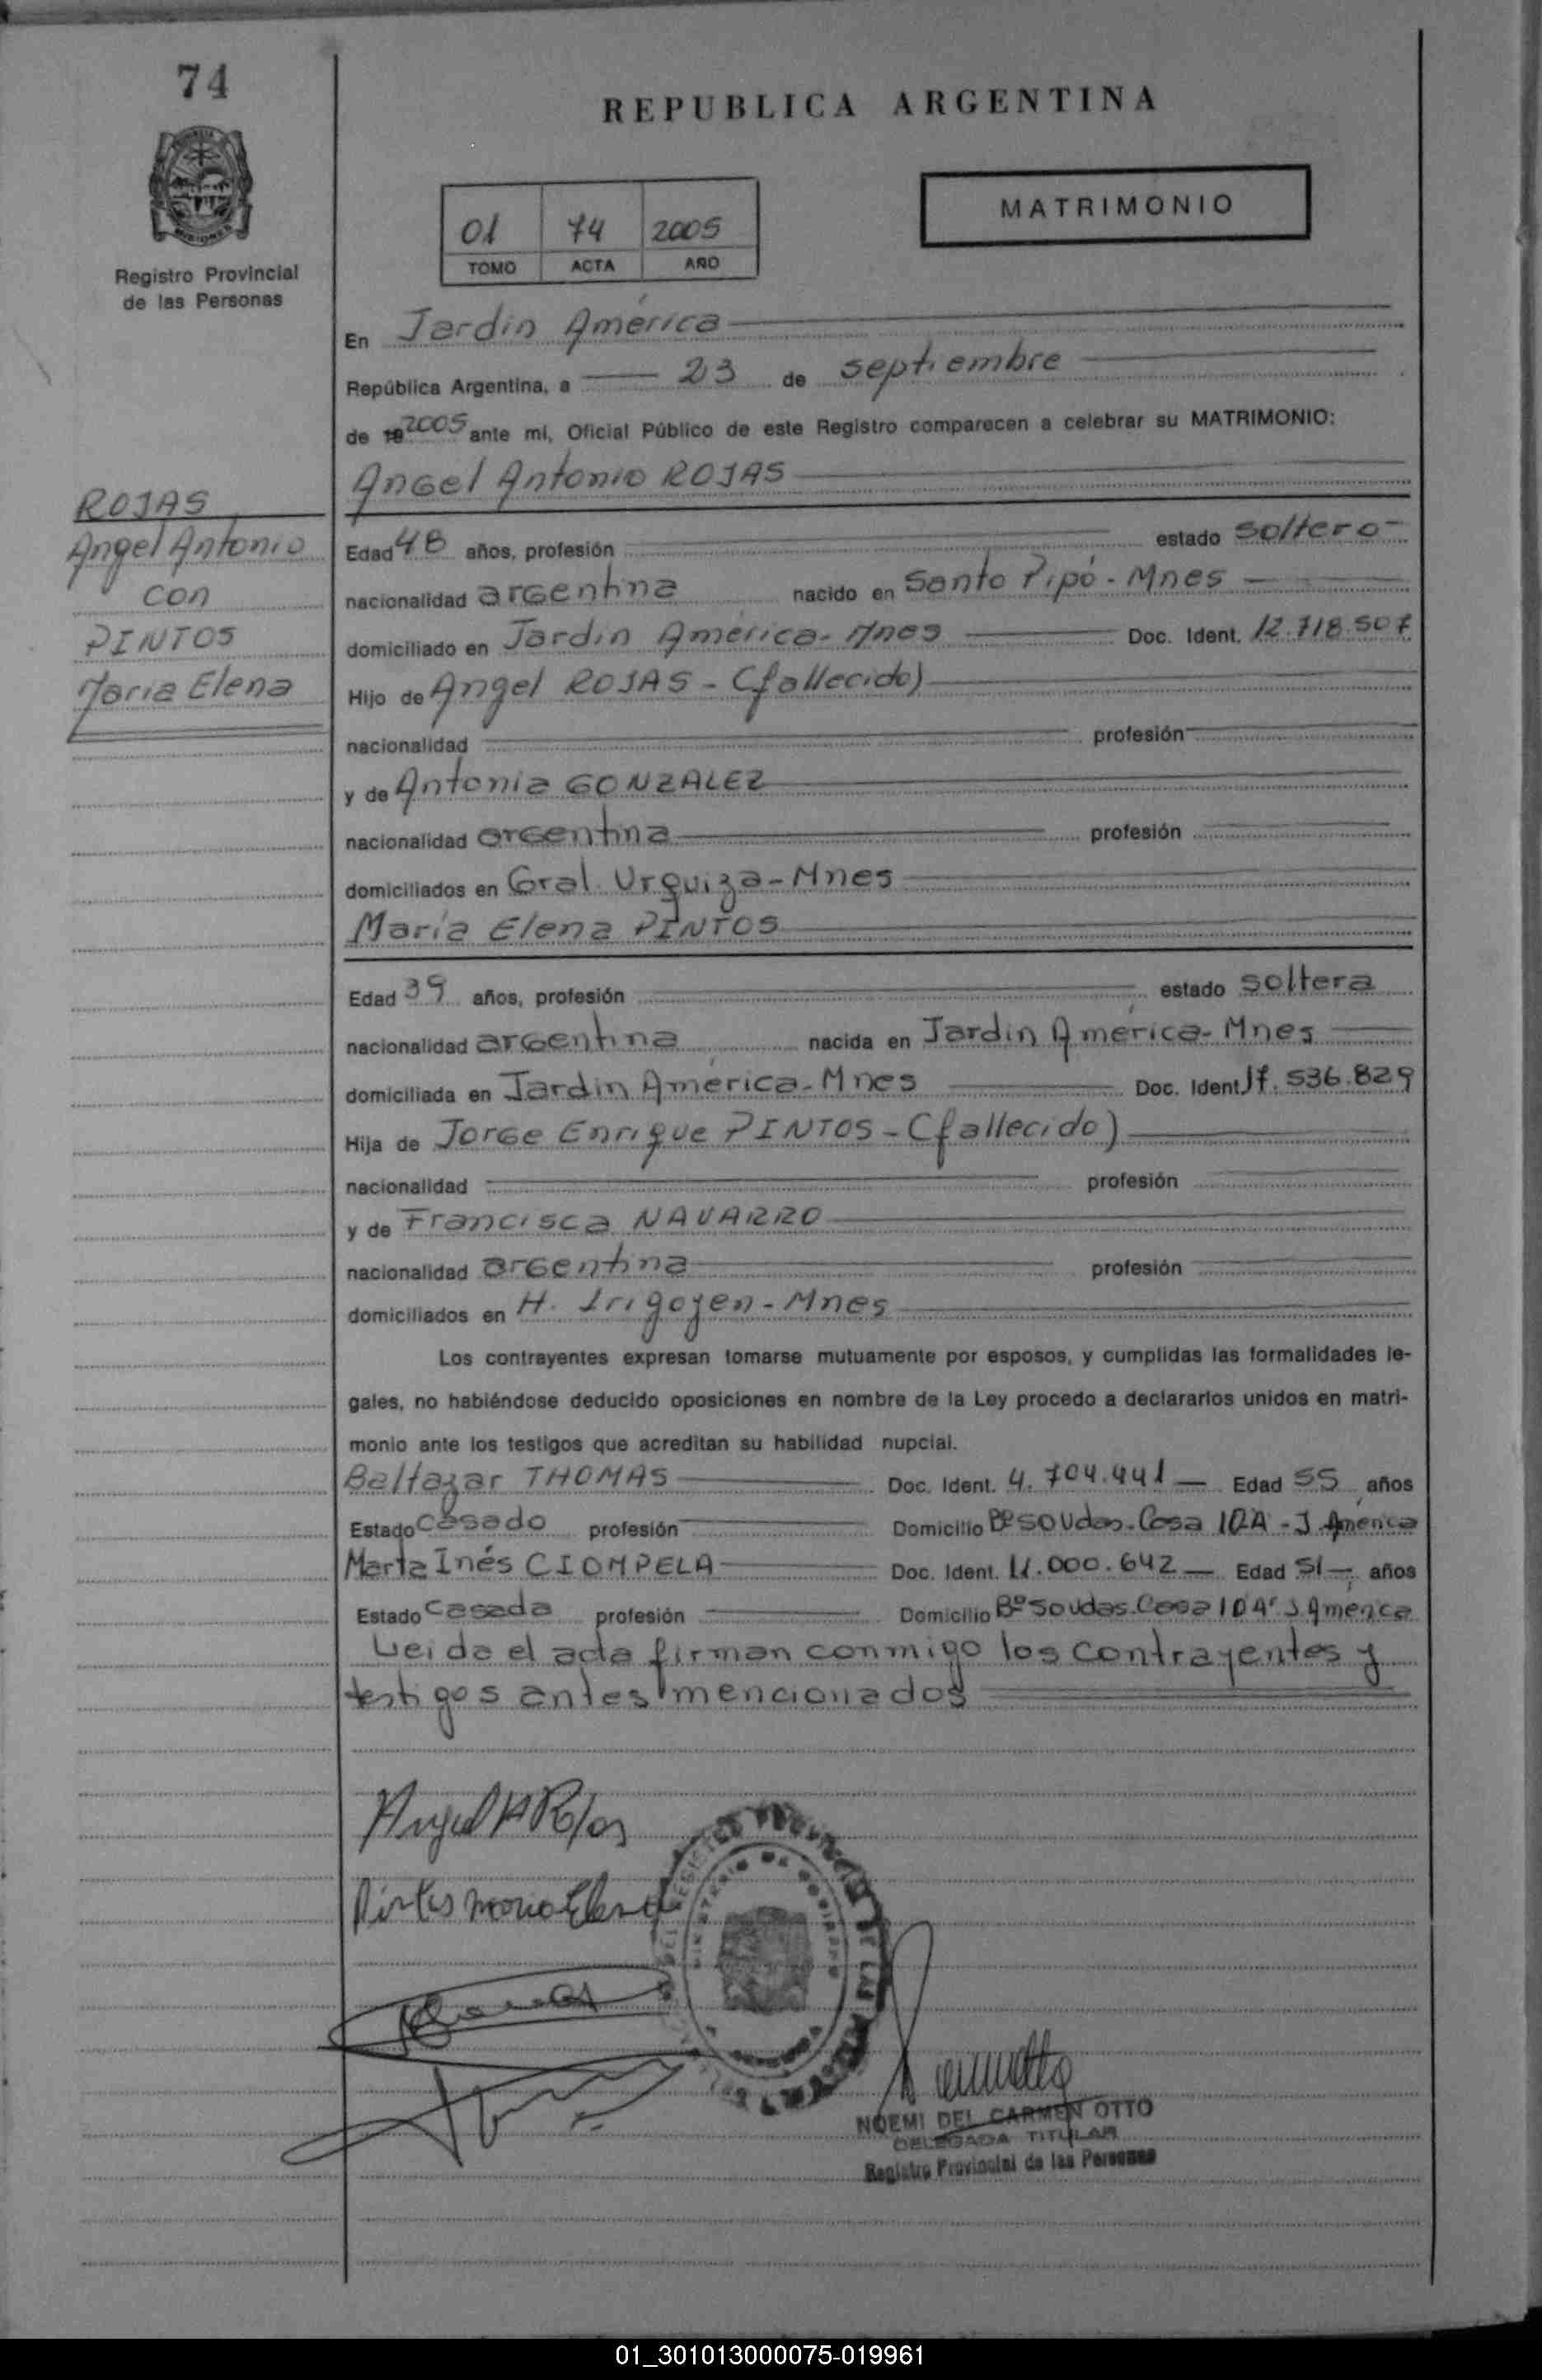 74
REPUBLICA ARGENTINA
MATRIMONIO
01 74 2005
TOMO ACTA AÑO
Registro Provincial
de las Personas
En Jardín América
República Argentina, a 23 de septiembre
de 19 2005 ante mí, Oficial Público de este Registro comparecen a celebrar su MATRIMONIO:
Angel Antonio ROJAS
ROJAS
Angel Antonio
con
PINTOS
María Elena
Edad 48 años, profesión estado soltero
nacionalidad argentina nacido en Santo Pipó - Mnes
domiciliado en Jardín América - Mnes Doc. Ident. 12.718.507
Hijo de Angel ROJAS - (fallecido)
nacionalidad profesión
y de Antonia GONZALEZ
nacionalidad argentina profesión
domiciliados en Gral. Urquiza - Mnes
María Elena PINTOS
Edad 39 años, profesión estado soltera
nacionalidad argentina nacida en Jardín América - Mnes
domiciliada en Jardín América - Mnes Doc. Ident. 17.536.829
Hija de Jorge Enrique PINTOS - (fallecido)
nacionalidad profesión
y de Francisca NAVARRO
nacionalidad argentina profesión
domiciliados en H. Irigoyen - Mnes
Los contrayentes expresan tomarse mutuamente por esposos, y cumplidas las formalidades le-
gales, no habiéndose deducido oposiciones en nombre de la Ley procedo a declararlos unidos en matri-
monio ante los testigos que acreditan su habilidad nupcial.
Baltazar THOMAS Doc. Ident. 4.704.441 Edad 55 años
Estado casado profesión Domicilio Bº Soudas - Casa 10A - J. América
Marta Inés CIOMPELA Doc. Ident. 11.000.642 Edad 51 años
Estado casada profesión Domicilio Bº Soudas - Casa 10A J América
Leída el acta firman conmigo los contrayentes y
testigos antes mencionados
Angel A Rojas
Pintos Maria Elena
NOEMI DEL CARMEN OTTO
DELEGADA TITULAR
Registro Provincial de las Personas
01_301013000075-019961